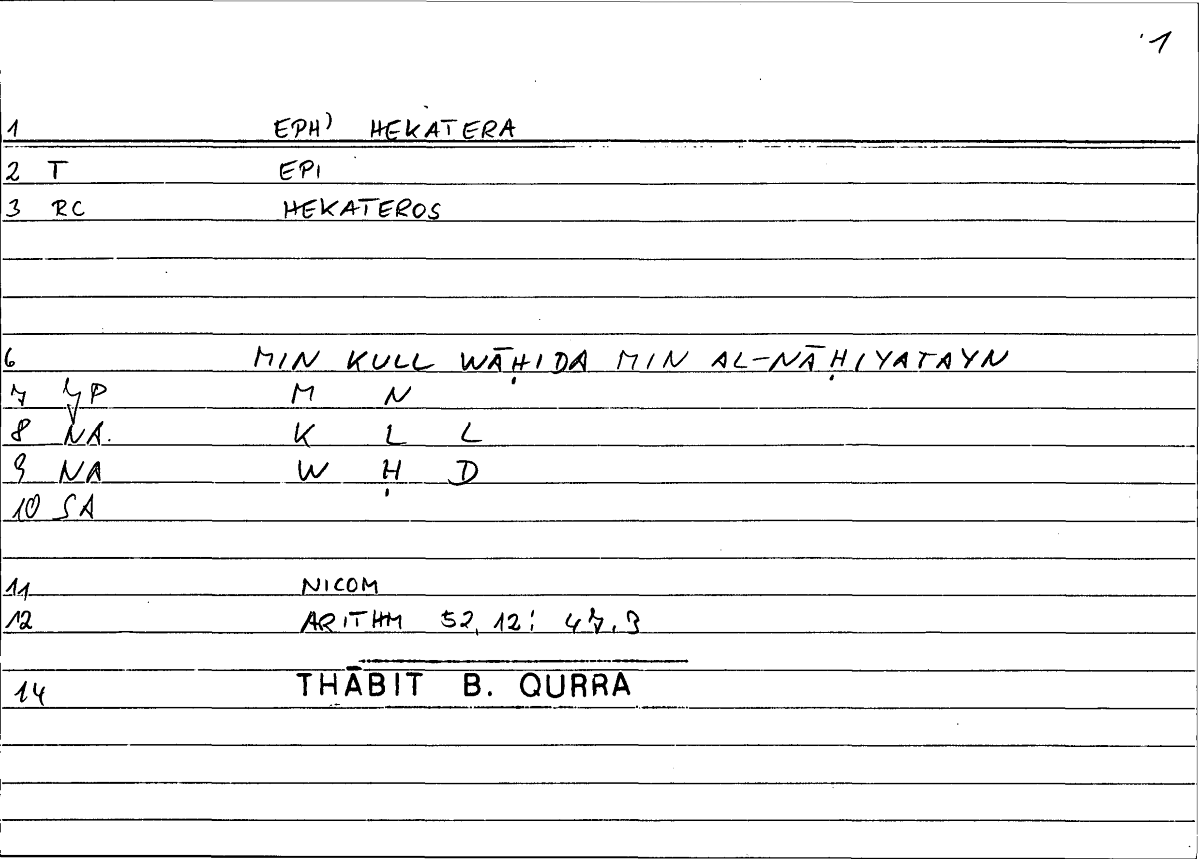 1
1 EPH' HEKATERA
2 T EPI
3 RC HEKATEROS
6 MIN KULL WĀḤIDA MIN AL-NĀḤIYATAYN
7 YP M N
8 NA. K L L
9 NA W Ḥ D
10 SA
11 NICOM
12 ARITHM 52, 12: 47.3
14 THĀBIT B. QURRA